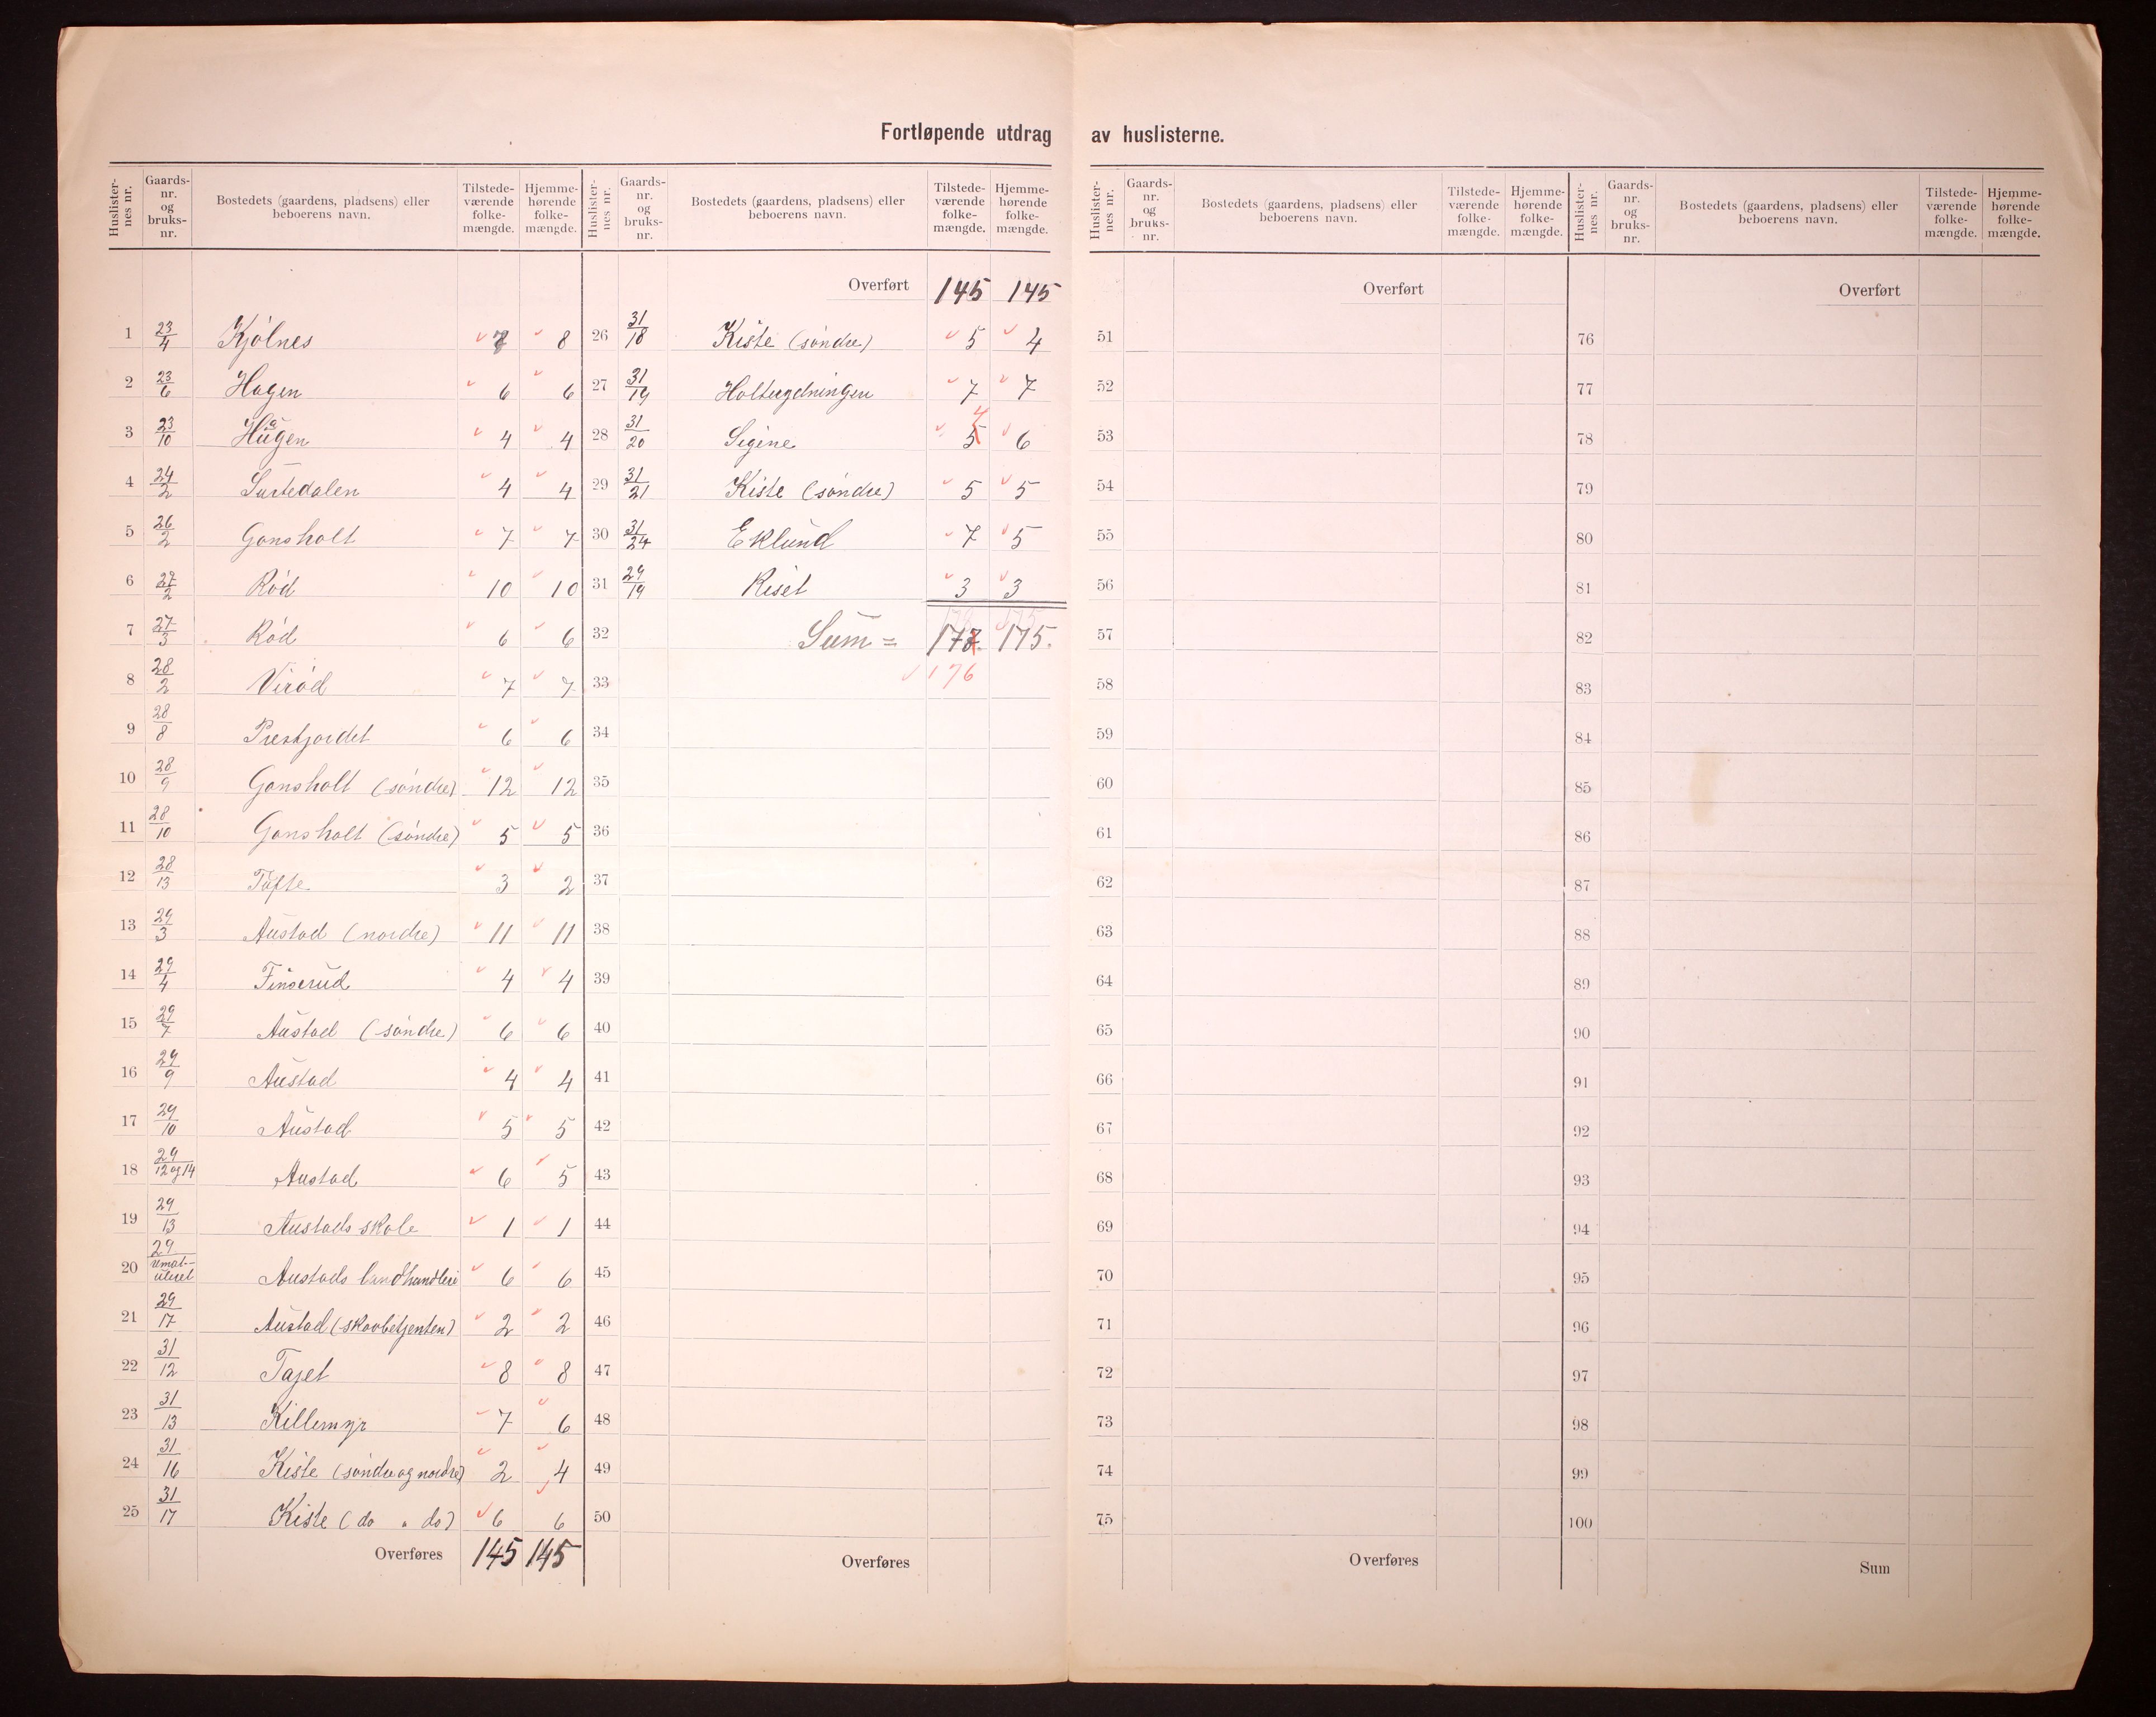 Fortløpende utdrag av huslisterne.
Huslisternes nr. Gaardsnr. og bruksnr. Bostedets (gaardens, pladsens) eller beboerens navn. Tilstedeværende folkemængde. Hjemmehørende folkemængde.
1 23/4 Kjølnes 7 8
2 23/6 Hagen 6 6
3 23/10 Hagen 4 4
4 24/2 Surtedalen 4 4
5 26/2 Gonsholt 7 7
6 27/2 Rød 10 10
7 27/3 Rød 6 6
8 28/2 Virød 7 7
9 28/8 Prestjordet 6 6
10 28/9 Gonsholt (søndre) 12 12
11 28/10 Gonsholt (søndre) 5 5
12 28/13 Tofte 3 2
13 29/3 Austad (nordre) 11 11
14 29/4 Finserud 4 4
15 29/7 Austad (søndre) 6 6
16 29/9 Austad 4 4
17 29/10 Austad 5 5
18 29/12 og 14 Austad 6 5
19 29/13 Austads skole 1 1
20 29/umatuleret Austads landhandleri 6 6
21 29/17 Austad (skovbetjenten) 2 2
22 31/12 Tajet 8 8
23 31/13 Killemyr 7 6
24 31/16 Kiste (søndre og nordre) 2 4
25 31/17 Kiste (do " do) 6 6
Overføres 145 145
Huslisternes nr. Gaardsnr. og bruksnr. Bostedets (gaardens, pladsens) eller beboerens navn. Tilstedeværende folkemængde. Hjemmehørende folkemængde.
Overført 145 145
26 31/18 Kiste (søndre) 5 4
27 31/19 Holterydningen 7 7
28 31/20 Sigine 5 4 6
29 31/21 Kiste (søndre) 5 5
30 31/24 Eklund 7 5
31 29/19 Riset 3 3
32 Sum = 177. 175.
33 176
34
35
36
37
38
39
40
41
42
43
44
45
46
47
48
49
50
Overføres
Huslisternes nr. Gaardsnr. og bruksnr. Bostedets (gaardens, pladsens) eller beboerens navn. Tilstedeværende folkemængde. Hjemmehørende folkemængde.
Overført
51
52
53
54
55
56
57
58
59
60
61
62
63
64
65
66
67
68
69
70
71
72
73
74
75
Overføres
Huslisternes nr. Gaardsnr. og bruksnr. Bostedets (gaardens, pladsens) eller beboerens navn. Tilstedeværende folkemængde. Hjemmehørende folkemængde.
Overført
76
77
78
79
80
81
82
83
84
85
86
87
88
89
90
91
92
93
94
95
96
97
98
99
100
Sum